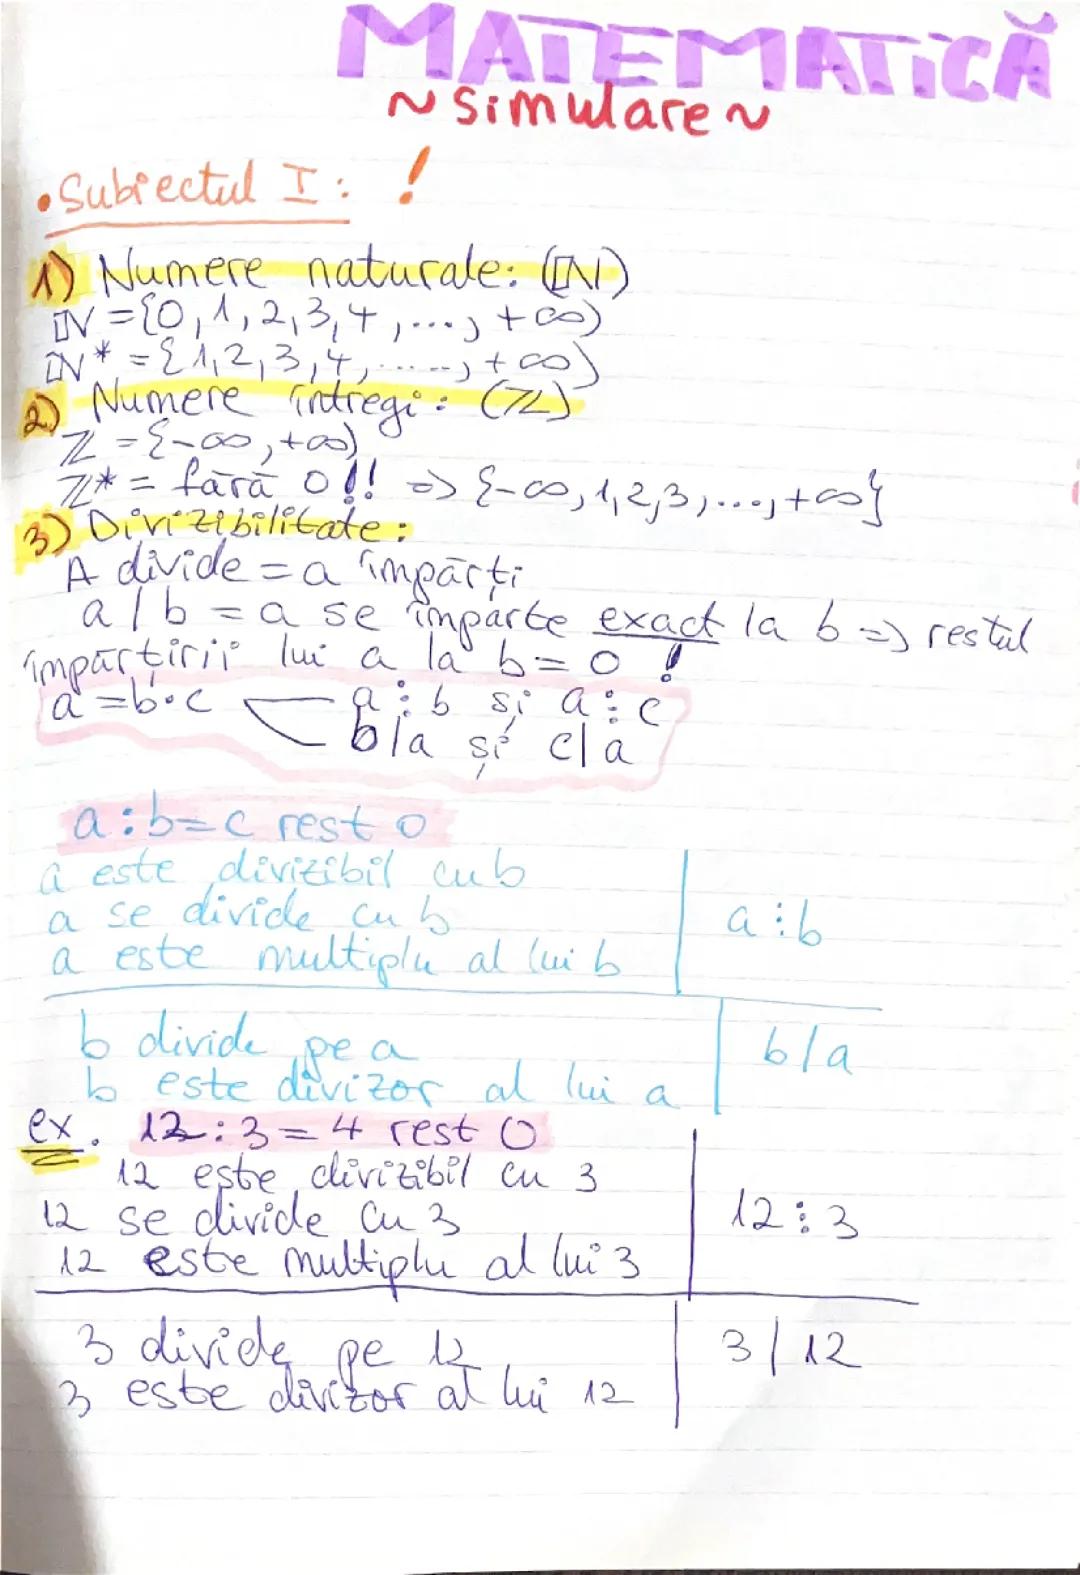 MATEMATICĂ
~ Simulare ~
• Subiectul I: !
1) Numere naturale: (ℕ)
ℕ = {0, 1, 2, 3, 4, ..., +∞)
ℕ* = {1, 2, 3, 4, ....., +∞)
2) Numere întregi: (ℤ)
ℤ = {-∞, +∞)
ℤ* = fără 0!! => {-∞, 1, 2, 3, ..., +∞}
3) Divizibilitate:
A divide = a împărți
a / b = a se împarte exact la b => restul
împărțirii lui a la b = 0 !
a = b·c a ⋮ b și a ⋮ c
b/a și c|a
a : b = c rest 0
a este divizibil cu b
a se divide cu b a ⋮ b
a este multiplu al lui b
b divide pe a b/a
b este divizor al lui a
ex. 12 : 3 = 4 rest 0
12 este divizibil cu 3
12 se divide cu 3 12 ⋮ 3
12 este multiplu al lui 3
3 divide pe 12 3 / 12
3 este divizor al lui 12